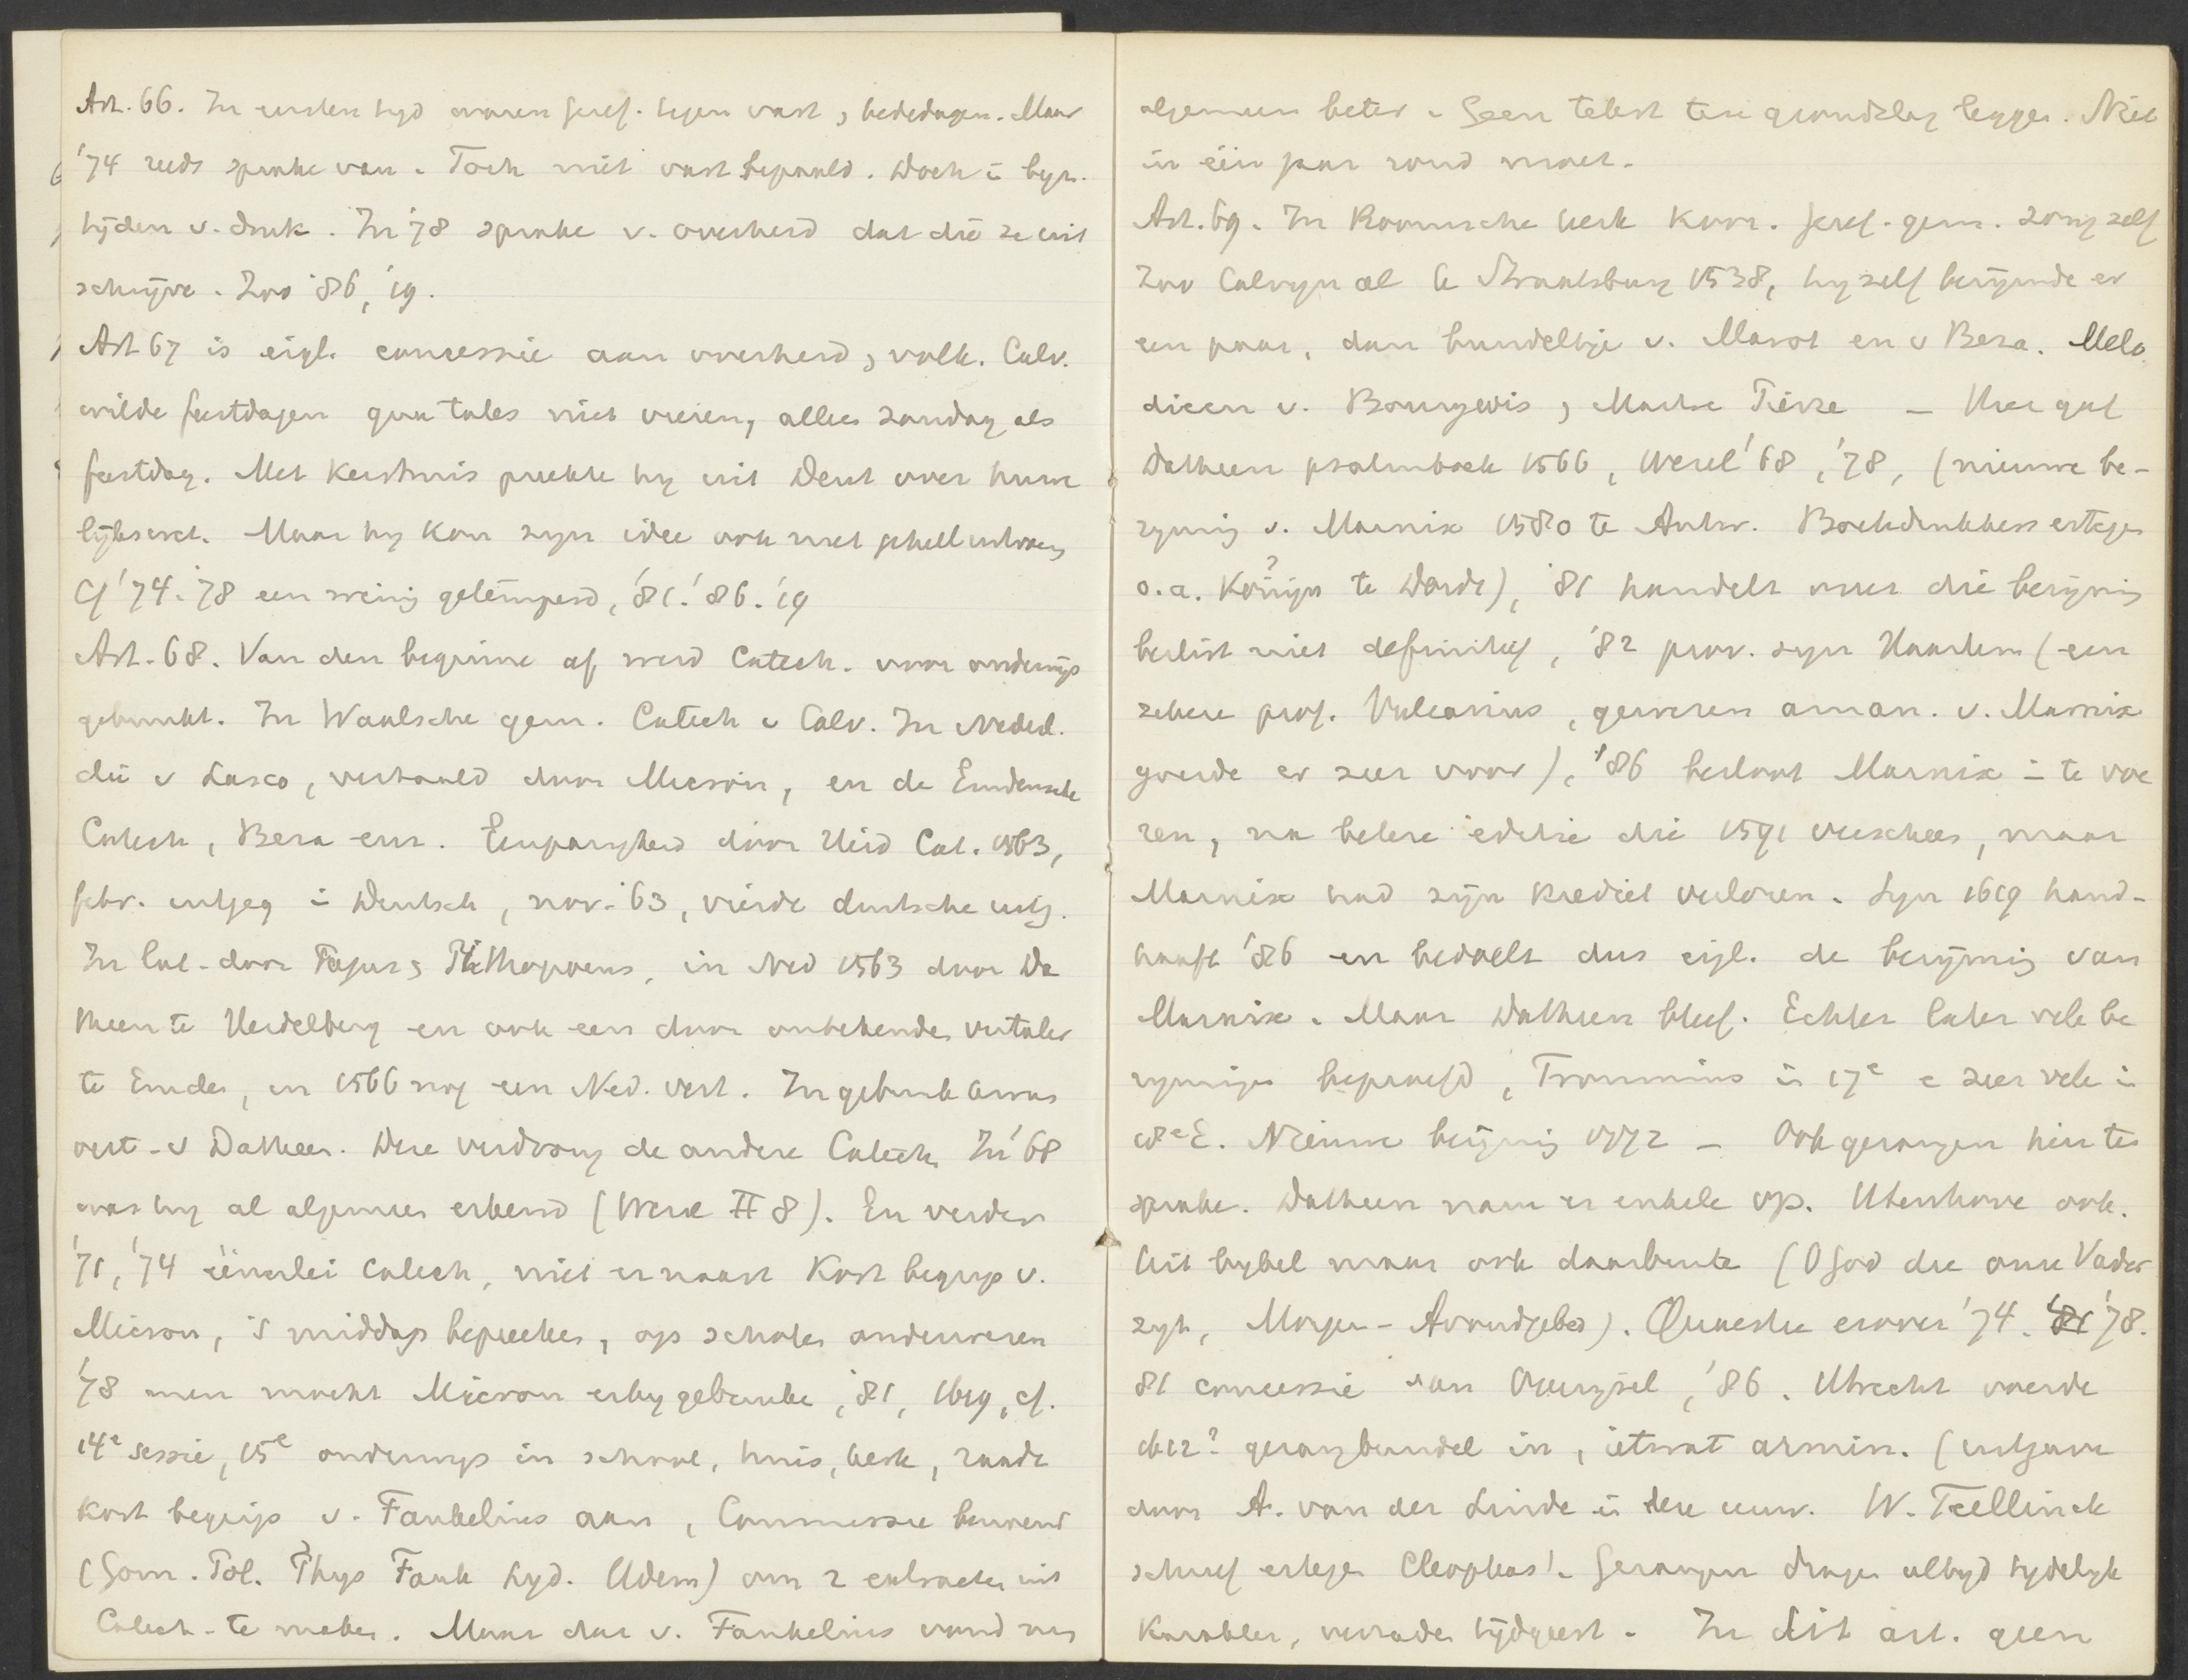 Art. 66. In eersten tyd waren geref. tegen vast, bededagen. Maar
'74 reeds sprake van. Toch niet vast bepaald. Doch i byz.
tijden v. druk. In '78 sprake v. overheid dat die ze uit
schrijve. Zoo '86, '19.
Art 67 is eigl. concessie aan overheid, volk. Calv.
wilde feestdagen qua tales niet vieren, alleen zondag als
feestdag. Met Kerstmis preekte hy uit Deut over huwe
lijkswet. Maar hy kon zyn idee ook niet geheel uitvoeren
Cf '74. '78 een weinig getemperd, '81. '86. '19
Art. 68. Van den beginne af werd Catech. voor onderwijs
gebruikt. In Waalsche gem. Catech v Calv. In Nederl.
die v Lasco, vertaald door Micron, en de Emdensche
Catech, Beza enz. Eenparigheid door Heid Cat. 1563,
febr. uitgeg i Deutsch, nov. '63, vierde duitsche uitg.
In Lat. door Lagus, Pithopoeus, in Ned 1563 door Da
theen te Heidelberg en ook een door onbekende vertaler
te Emden, in 1566 nog een Ned. vert. In gebruik kwam
vert. v Datheen. Deze verdrong de andere Catech. In '68
was hy al algemeen erkend (Wesel II 8). En verder
'71, '74 éénerlei Catech, niet ernaast Kort begrip v.
Micron, 's middags bepreeken, op scholen onderwezen
'78 men mocht Micron erby gebruiken, '81, 1619, cf.
14e sessie, 15e onderwijs in school, huis, kerk, raade
Kort begrip v. Faukelius aan, Commissie benoemd
(Gom. Pol. Thys Fauk Lyd. Udem) om 2 extracten uit
Catech. te maken. Maar dat v. Faukelius vond men
algemeen beter. Geen tekst ten grondslag leggen. Niet
in één jaar rond moet.
Art. 69. In Roomsche kerk koor. Geref. gem. zong zelf
Zoo Calvyn al te Straatsburg 1538, hy zelf berijmde er
een paar, dan bundeltje v. Marot en v Beza. Melo
dieen v. Bourgeois, Maitre Pierre – Hier gaf
Datheen psalmboek 1566, Wesel '68, '78, (nieuwe be-
ryming v. Marnix 1580 te Antw. Boekdrukkers ertegen
o.a. te Dordr), '81 handelt over die beryming
beslist niet definitief, '82 prov. syn Haarlem (een
zekere prof. Vulcanius, geweren aman. v. Marnix
yverde er zeer voor), '86 besloot Marnix i te voe
ren, na betere editie die 1591 verscheen, maar
Marnix had zijn krediet verloren. Syn 1619 hand-
haaft '86 en bedoelt dus eigl. de berijming van
Marnix. Maar Datheen bleef. Echter later vele be
rymingen beproefd, Trommius in 17e e zeer vele in
18e E. Nieuwe berijming 1772 – Ook gezangen hier ter
sprake. Datheen nam er enkele op. Utenhove ook.
Uit bybel maar ook daarbuiten (O God die onze Vader
zyt, Morgen- Avondgebed). Quaestie erover '74. '78.
81 concessie aan Overijsel, '86. Utrecht voerde
1612? gezangbundel in, ietwat armin. (uitgave
door A. van der Linde in deze eeuw. W. Teellinck
schreef ertegen Cleophas'. Gezangen dragen altyd tydelyk
karakter, verraden tijdgeest. In dit art. geen